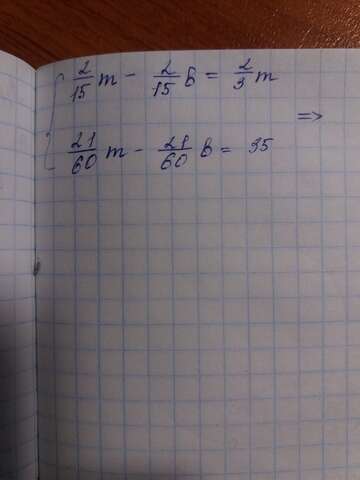 2/15 m - 2/15 b = 2/3 m
=>
21/60 m - 21/60 b = 35